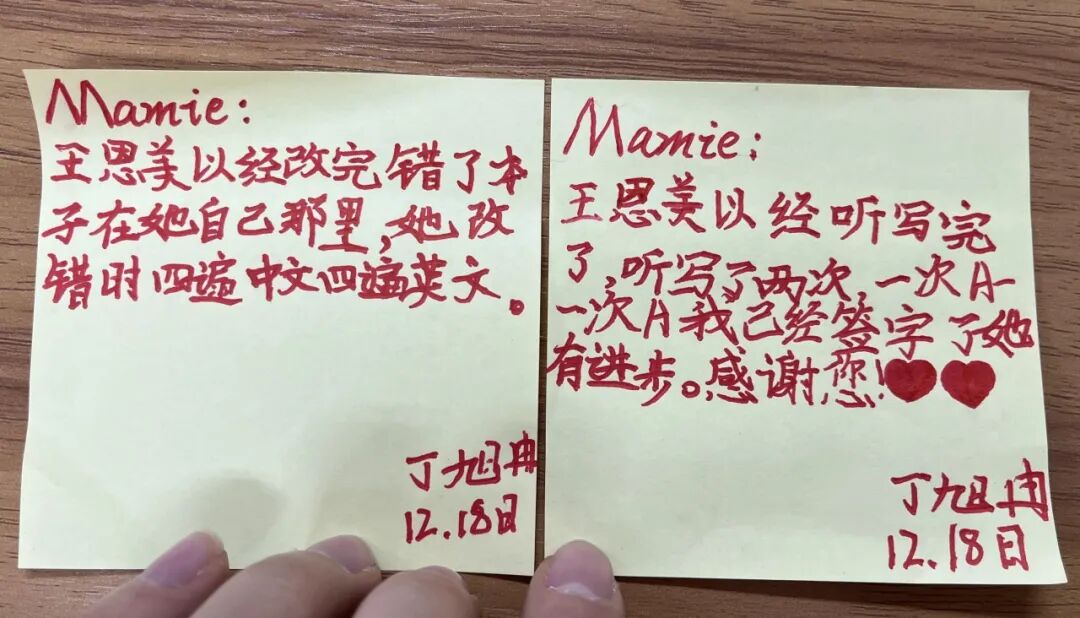 Mamie:
王思美以经改完错了本
子在她自己那里,她改
错时四遍中文四遍英文。
丁旭冉
12.18日
Mamie:
王思美以经听写完
了,听写了两次,一次A-
一次A我已经签字了她
有进步。感谢您!
丁旭冉
12.18日